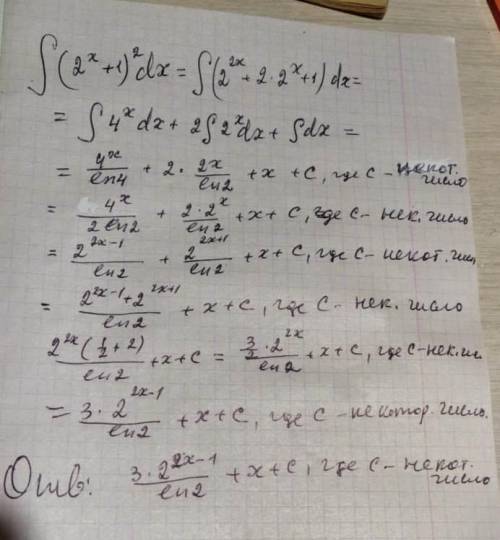 ∫(2^x+1)^2 dx = ∫(2^{2x} + 2·2^x+1) dx =
= ∫4^x dx + 2∫2^x dx + ∫dx =
= 4^x/ln4 + 2· 2x/ln2 + x + C, где C – некот. число
= 4^x/2ln2 + 2·2^x/ln2 + x + C, где C – нек. число
= 2^{2x-1}/ln2 + 2^{2x+1}/ln2 + x + C, где C – некот. чи
= (2^{2x-1}+2^{2x+1})/ln2 + x + C, где C – нек. число
2^{2x}(1/2+2)/ln2 + x + C = 3/2·2^{2x}/ln2 + x + C, где C – нек.
= 3·2^{2x-1}/ln2 + x + C, где C – некотор. число.
Отв: 3·2^{2x-1}/ln2 + x + C, где C – некот. число